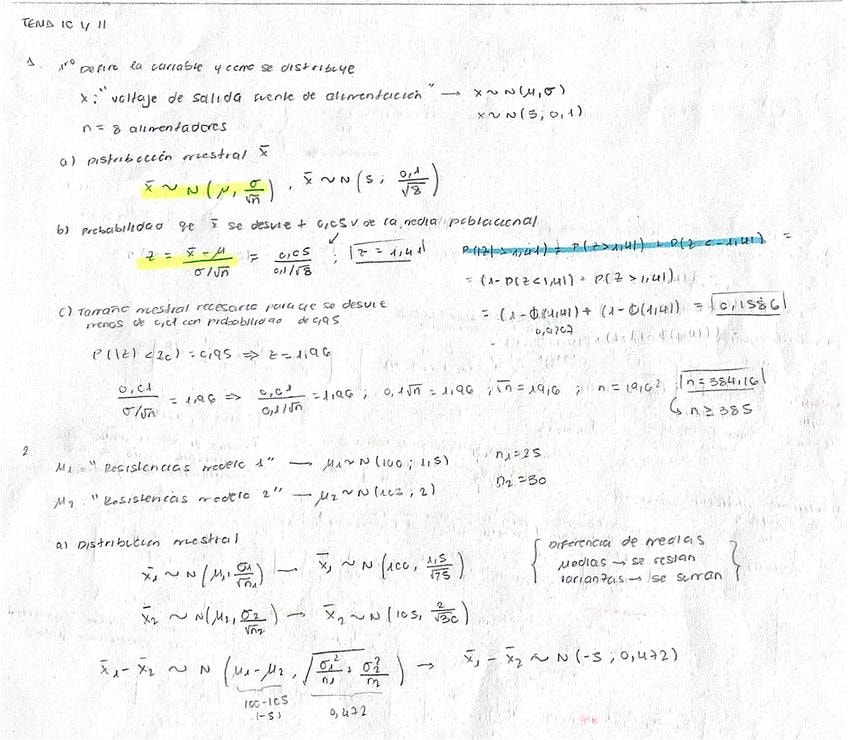 TEMA 10 y 11
1. 1º Definir la variable y como se distribuye
x: "voltaje de salida fuente de alimentación" → x ~ N(μ, σ)
x ~ N(5; 0,1)
n = 8 alimentadores
a) Distribución muestral x̄
x̄ ~ N(μ, σ/√n) , x̄ ~ N(5; 0,1/√8)
b) Probabilidad de x̄ se desvíe + 0,05 V de la media poblacional
z = (x̄ - μ)/(σ/√n) = 0,05/(0,1/√8) ; z = 1,41
P(|z| > 1,41) = P(z > 1,41) + P(z < -1,41) =
= (1 - P(z < 1,41) + P(z > 1,41)
= (1 - Φ(1,41) + (1 - Φ(1,41) = 0,1586
c) Tamaño muestral necesario para que se desvíe
menos de 0,01 con probabilidad de 0,95
P(|z| < zc) = 0,95 ⇒ z = 1,96
0,01/(σ/√n) = 1,96 ⇒ 0,01/(0,1/√n) = 1,96 ; 0,1√n = 1,96 ; √n = 19,6 ; n = 19,6² n = 384,16
↳ n ≥ 385
2
μ1 = "Resistencias modelo 1" → μ1 ~ N(100; 1,5) n1 = 25
μ2: "Resistencias modelo 2" → μ2 ~ N(105; 2) n2 = 30
a) Distribución muestral
x̄1 ~ N(μ1, σ1/√n1) → x̄1 ~ N(100, 1,5/√25)
{ Diferencia de medias
medias → se restan
varianzas → se suman }
x̄2 ~ N(μ2, σ2/√n2) → x̄2 ~ N(105, 2/√30)
x̄1 - x̄2 ~ N(μ1 - μ2, √(σ1²/n1 + σ2²/n2)) → x̄1 - x̄2 ~ N(-5; 0,472)
100-105 0,472
(-5)